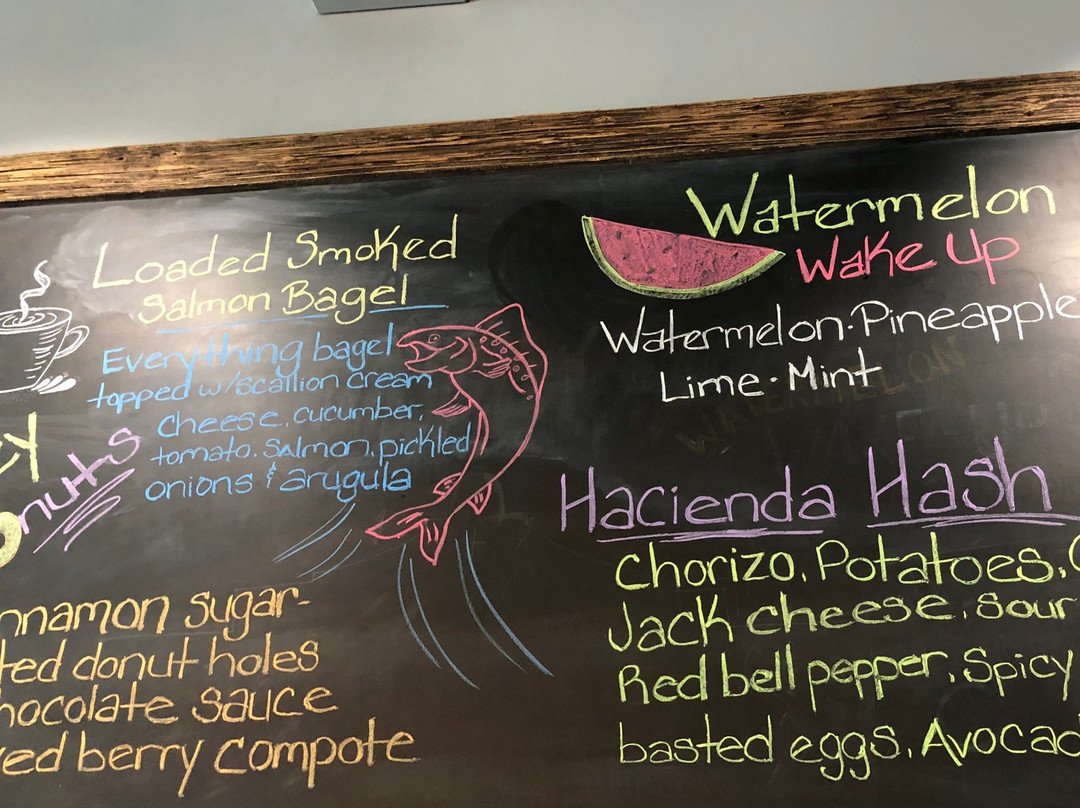 Loaded Smoked
Salmon Bagel
Everything bagel
topped w/scallion cream
cheese, cucumber,
tomato, salmon, pickled
onions & arugula
nuts
nnamon sugar-
ted donut holes
hocolate sauce
ed berry compote
Watermelon
Wake Up
Watermelon·Pineapple
Lime·Mint
Hacienda Hash
Chorizo, Potatoes,
Jack cheese, sour
Red bell pepper, Spicy
basted eggs, Avocad